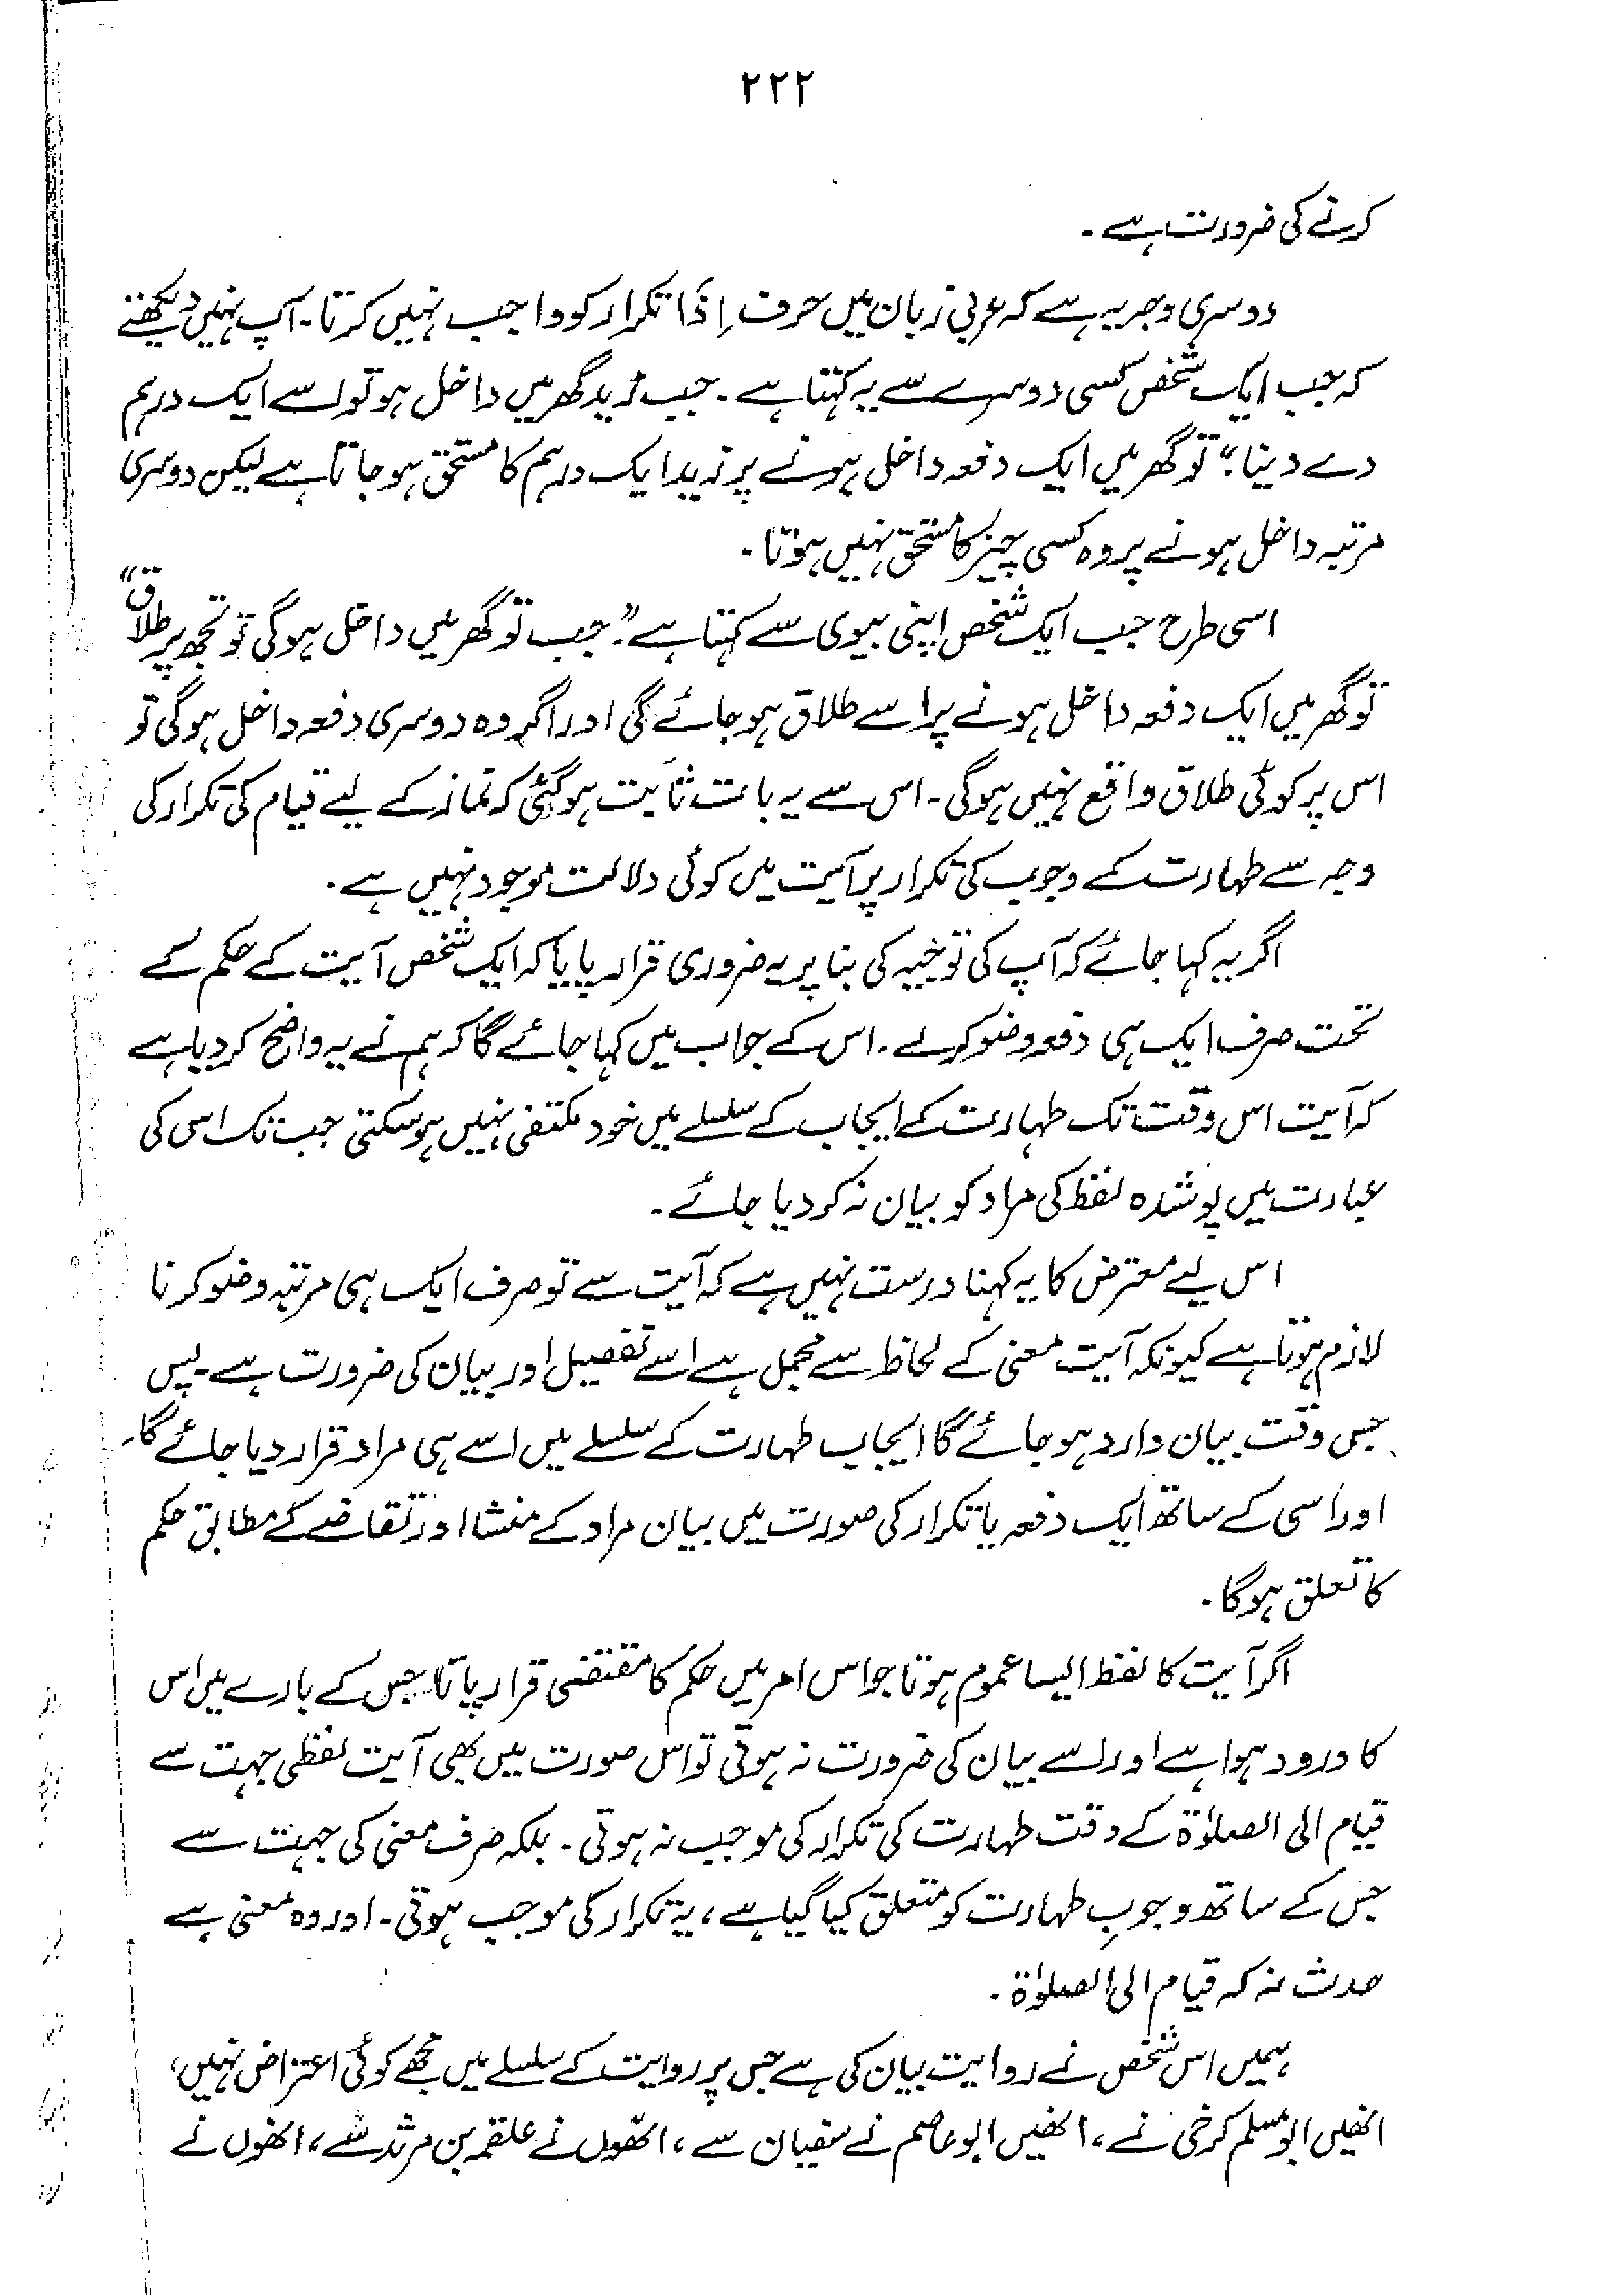 ۲۲۲
کرنے کی ضرورت ہے۔
دوسری وجہ یہ ہے کہ عربی زبان میں حرف اِذَا تکرار کو واجب نہیں کرتا۔ آپ نہیں دیکھتے
کہ جب ایک شخص کسی دوسرے سے یہ کہتا ہے۔ جب زید گھر میں داخل ہو تو اسے ایک درہم
دے دینا؛" تو گھر میں ایک دفعہ داخل ہونے پر زید ایک درہم کا مستحق ہو جاتا ہے لیکن دوسری
مرتبہ داخل ہونے پر وہ کسی چیز کا مستحق نہیں ہوتا۔
اسی طرح جب ایک شخص اپنی بیوی سے کہتا ہے "جب تو گھر میں داخل ہوگی تو تجھ پر طلاق"
تو گھر میں ایک دفعہ داخل ہونے پر اسے طلاق ہو جائے گی اور اگر وہ دوسری دفعہ داخل ہوگی تو
اس پر کوئی طلاق واقع نہیں ہوگی۔ اس سے یہ بات ثابت ہوگئی کہ نماز کے لیے قیام کی تکرار کی
وجہ سے طہارت کے وجوب کی تکرار پر آیت میں کوئی دلالت موجود نہیں ہے۔
اگر یہ کہا جائے کہ آپ کی توجیہ کی بنا پر یہ ضروری قرار پایا کہ ایک شخص آیت کے حکم کے
تحت صرف ایک ہی دفعہ وضو کرے۔ اس کے جواب میں کہا جائے گا کہ ہم نے یہ واضح کر دیا ہے
کہ آیت اس وقت تک طہارت کے ایجاب کے سلسلے میں خود مکتفی نہیں ہو سکتی جب تک اس کی
عبارت میں پوشدہ لفظ کی مراد کو بیان نہ کر دیا جائے۔
اس لیے معترض کا یہ کہنا درست نہیں ہے کہ آیت سے تو صرف ایک ہی مرتبہ وضو کرنا
لازم ہوتا ہے کیونکہ آیت معنی کے لحاظ سے مجمل ہے اسے تفصیل اور بیان کی ضرورت ہے۔ پس
جس وقت بیان وارد ہو جائے گا ایجاب طہارت کے سلسلے میں اسے ہی مراد قرار دیا جائے گا۔
اور اسی کے ساتھ ایک دفعہ یا تکرار کی صورت میں بیان مراد کے منشا اور تقاضے کے مطابق حکم
کا تعلق ہوگا۔
اگر آیت کا لفظ ایسا عموم ہوتا جو اس امر میں حکم کا مقتضی قرار پاتا جس کے بارے میں اس
کا درود ہوا ہے اور اسے بیان کی ضرورت نہ ہوتی تو اس صورت میں بھی آیت لفظی جہت سے
قیام الی الصلوٰۃ کے وقت طہارت کی تکرار کی موجب نہ ہوتی۔ بلکہ صرف معنی کی جہت سے
جس کے ساتھ وجوبِ طہارت کو متعلق کیا گیا ہے، یہ تکرار کی موجب ہوتی۔ اور وہ معنی ہے
حدث نہ کہ قیام الی الصلوٰۃ۔
ہمیں اس شخص نے روایت بیان کی ہے جس پر روایت کے سلسلے میں مجھے کوئی اعتراض نہیں،
انھیں ابو مسلم کرخی نے، انھیں ابو عاصم نے سفیان سے، انھوں نے علقمہ بن مرثد سے، انھوں نے